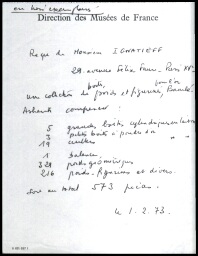 en trois exemplaires
Direction des Musées de France
Reçu de Monsieur IGNATIEFF
28 avenue Félix Faure - Paris XVe
une collection de poids et figurines,
Ashanti
5 grandes boîtes cylindriques en laiton
3 petites boîtes à poudre d'or " "
19 cuillers
1 balance
329 poids géométriques
216 poids - figurines et divers.
Soit au total 573 pièces.
le 1.2.73.